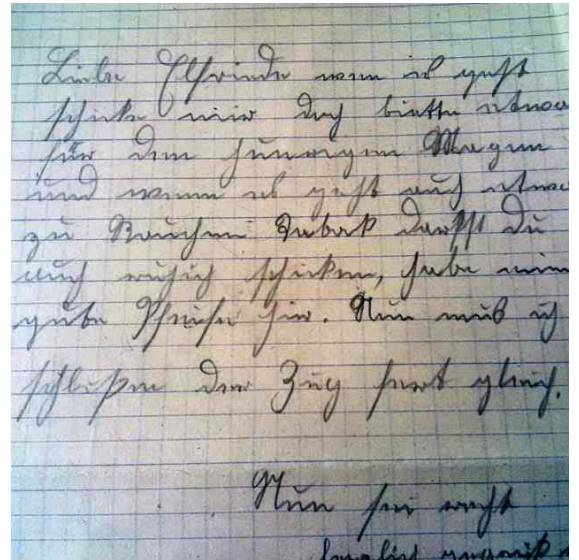 Liebe Elfriede wenn es geht
schicke mir doch biette etwas
für den hunrigen Magen
und wenn es geht auch etwas
zu Rauchen Tabak darfst du
auch ruhich schicken, habe eine
gute Pfeife hir. Nun muß ich
schlißen der Zug fart gleich.
Nun sei recht
herzlist